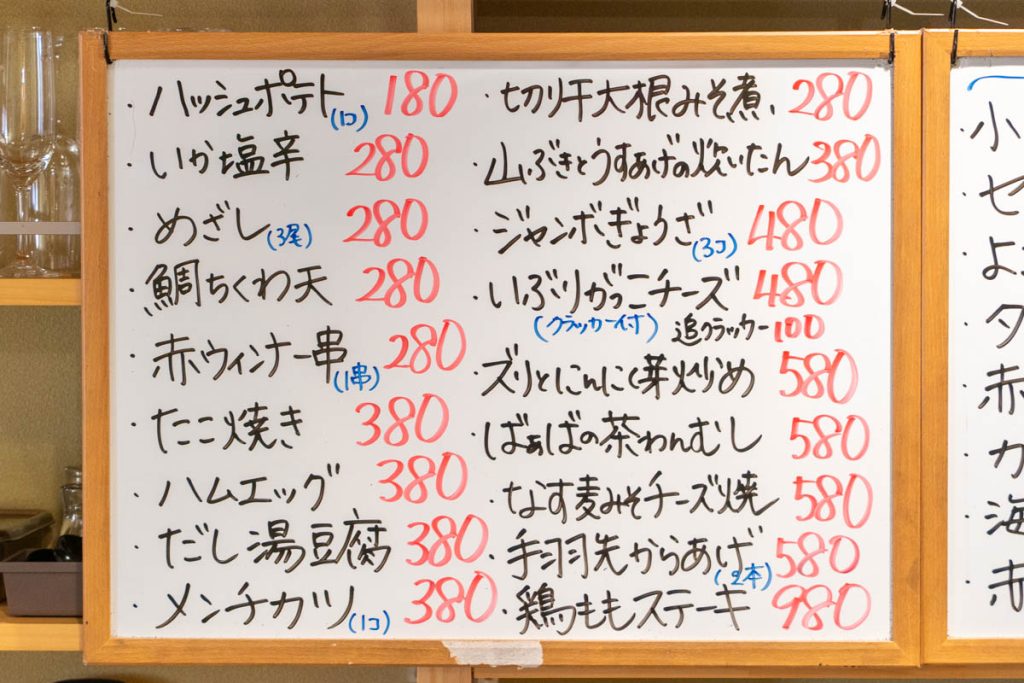 ・ハッシュポテト(1コ) 180
・いか塩辛 280
・めざし(3尾) 280
・鯛ちくわ天 280
・赤ウィンナー串(1串) 280
・たこ焼き 380
・ハムエッグ 380
・だし湯豆腐 380
・メンチカツ(1コ) 380
・切り干大根みそ煮 280
・山ぶきとうすあげの炊いたん 380
・ジャンボぎょうざ(3コ) 480
・いぶりがっこチーズ 480
(クラッカー付) 追クラッカー100
・ズリとにんにく芽炒め 580
・ばぁばの茶わんむし 580
・なす麦みそチーズ焼 580
・手羽先からあげ(2本) 580
・鶏ももステーキ 980
・小
・セ
・よ
・タ
・赤
・カ
・海
・赤